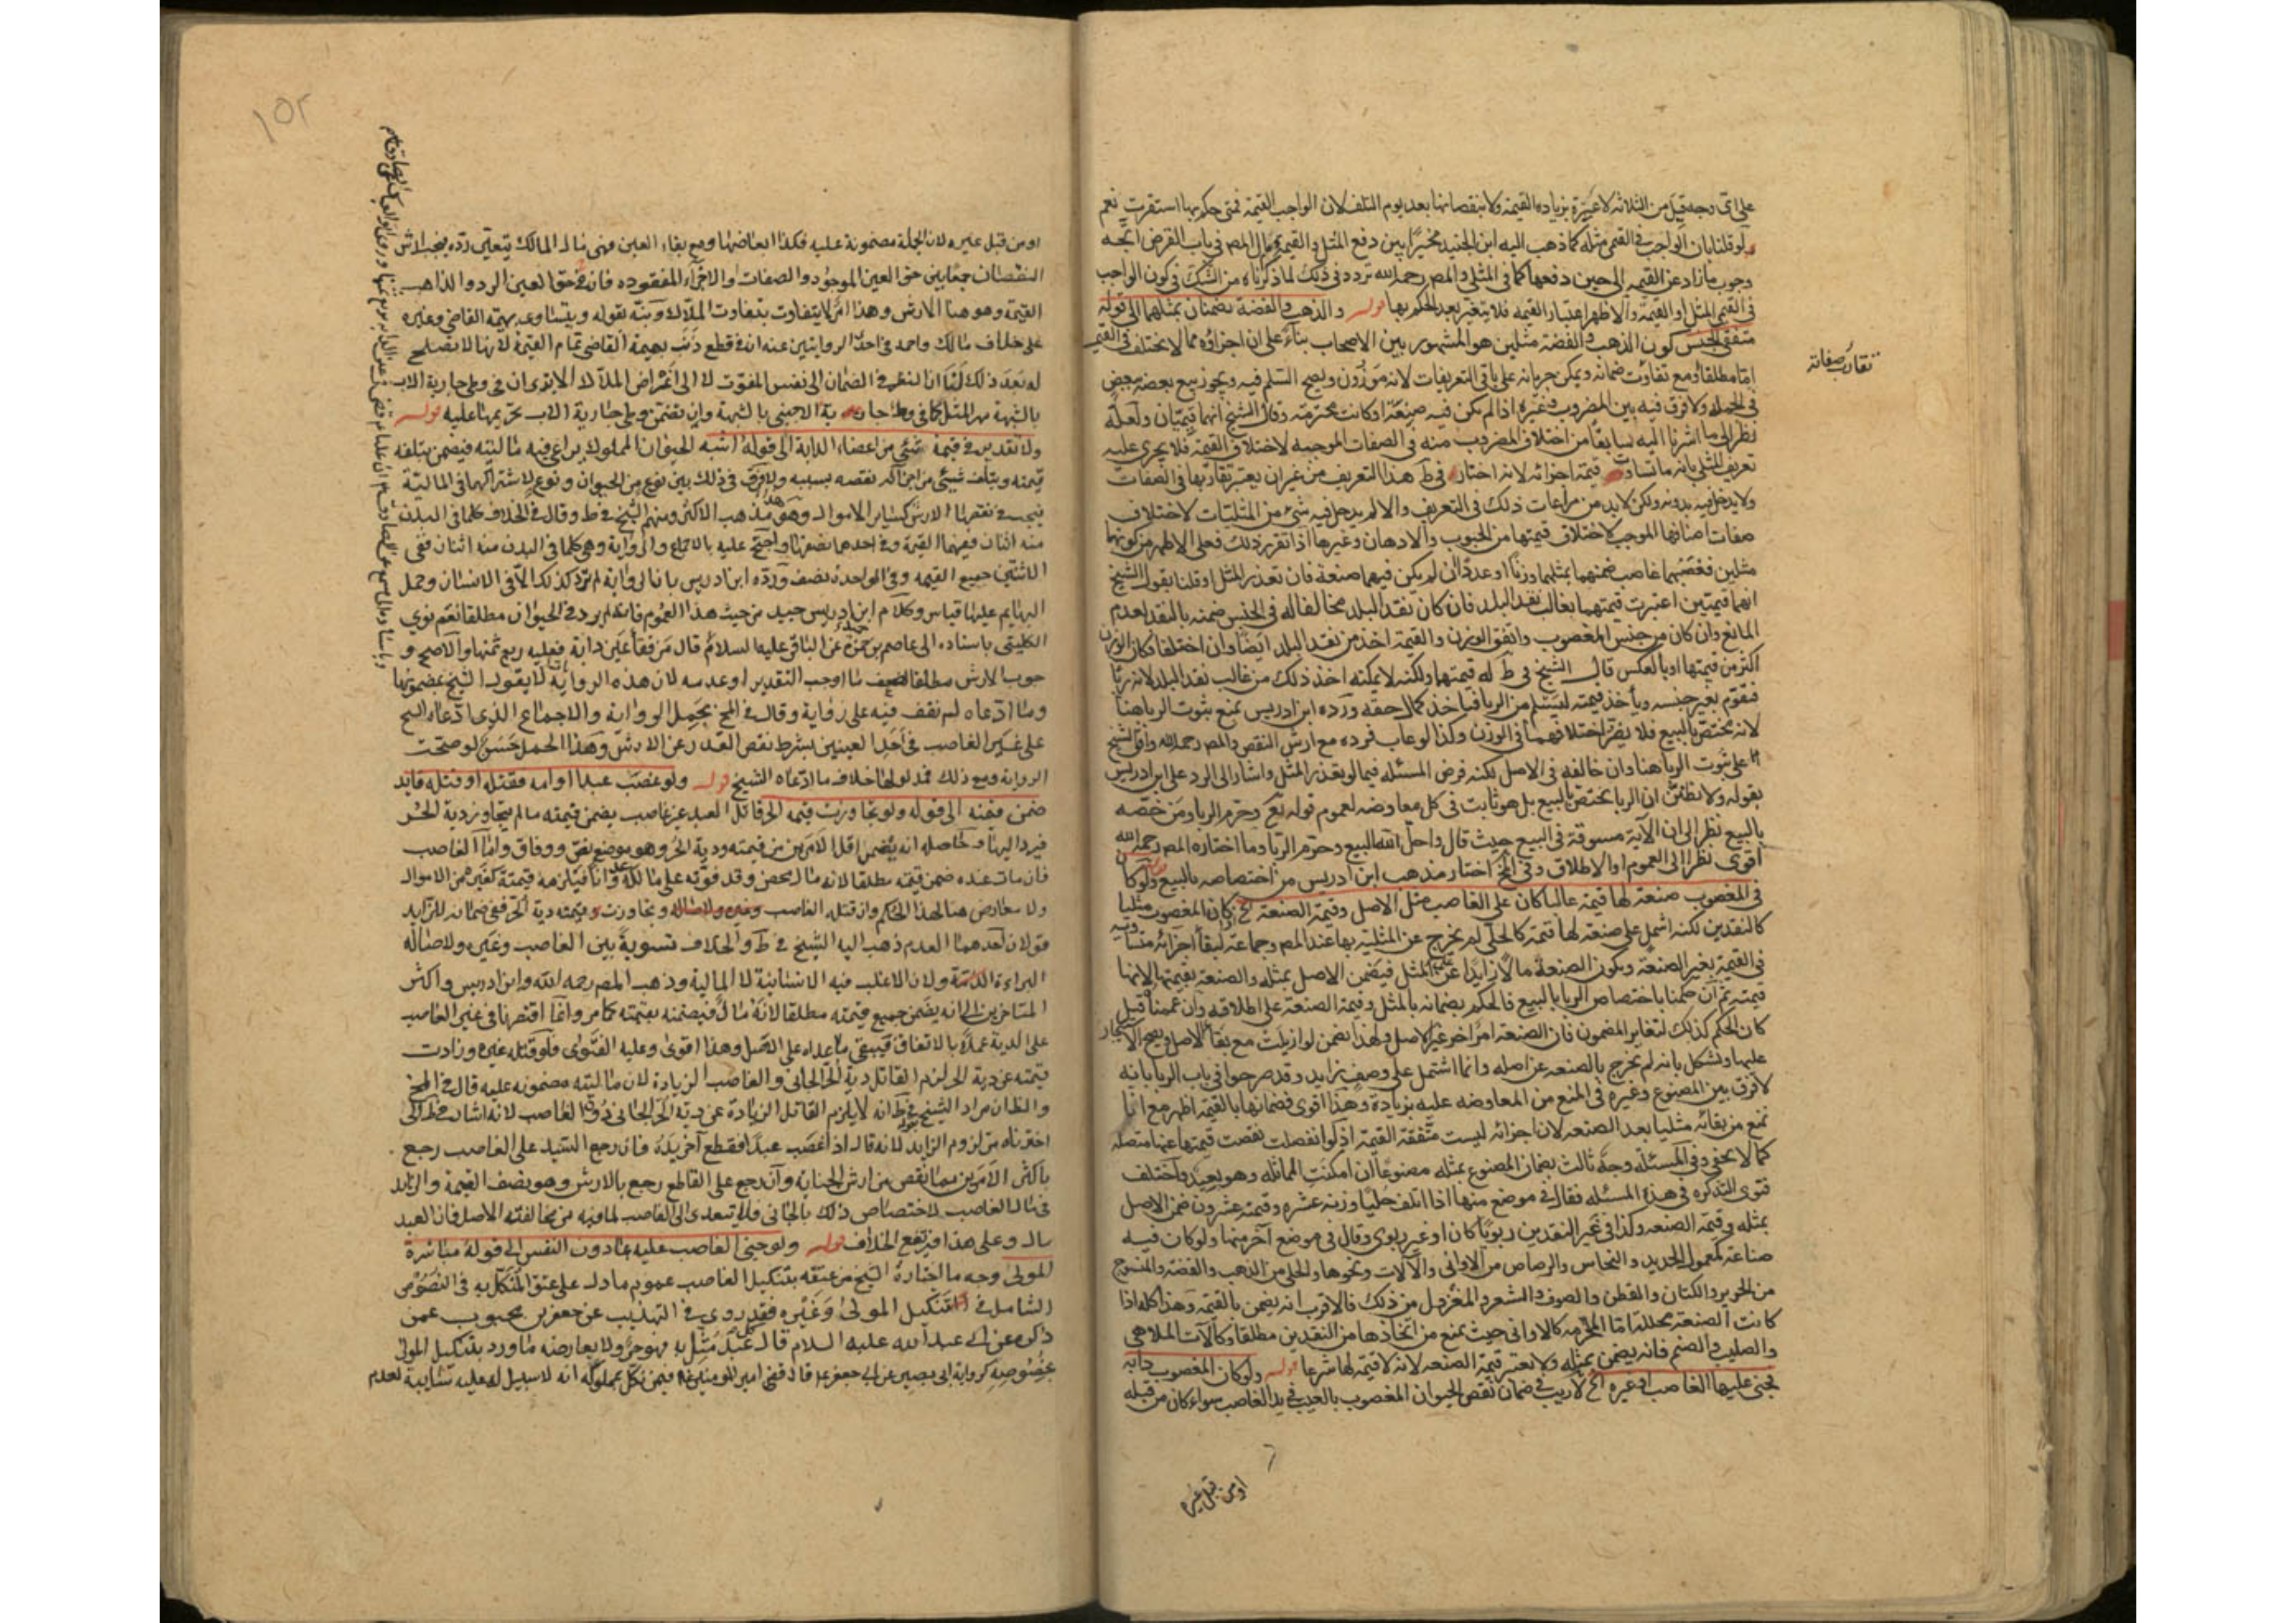 على اي وجه قيل من الثلاثة لا عبرة بزيادة القيمة ولا بنقصانها بعد يوم التلف لان الواجب القيمة فمتى حكم بها استقرت نعم
لو قلنا بان الواجب في القيمي مثله كما ذهب اليه ابن الجنيد مخيرا بين دفع المثل والقيمة ومال المص في باب القرض اتجه
وجوب ما زاد عن القيمة الى حين دفعها كما في المثلي والمص رحمه الله تردد في ذلك لما ذكرناه من الشك في كون الواجب
في القيمي المثل او القيمة والاظهر اعتبار القيمة فلا يتغير بعد الحكم بها قوله والذهب والفضة يضمنان بمثلهما الى قوله
متفقي الجنس كون الذهب والفضة مثليين هو المشهور بين الاصحاب بناء على ان اجزاؤه مما لا يختلف في القيمة
اما مطلقا او مع تفاوت ضمانه ويمكن جريانه على باقي التعريفات لانه موزون ويصح السلم فيه ويجوز بيع بعضه ببعض
تقارب صفاته
في الجملة ولا فرق فيه بين المضروب وغيره اذا لم يكن فيه صنعة او كانت محرمة وقال الشيخ انهما قيميان ولعله
نظر الى ما اشرنا اليه سابقا من اختلاف المضروب منه في الصفات الموجبة لاختلاف القيمة فلا يجري عليه
تعريف المثلي بانه ما تساوت قيمة اجزائه لانه اختار في ط هذا التعريف من غير ان يعتبر تقاربها في الصفات
ولا يدخل فيه بدونه ولكن لابد من مراعات ذلك في التعريف والا لم يدخل فيه شيء من المثليات لاختلاف
صفات اصنافها الموجب لاختلاف قيمتها من الحبوب والادهان وغيرها اذا تقرر ذلك فعلى الاظهر من كونهما
مثليين فغصبهما غاصب ضمنهما بمثلهما وزنا او عددا ان لم يكن فيهما صنعة فان تعذر المثل او قلنا بقول الشيخ
انهما قيميتين اعتبرت قيمتهما بغالب نقد البلد فان كان نقد البلد مخالفا له في الجنس ضمنه بالنقد لعدم
المانع وان كان من جنس المغصوب واتفق الوزن والقيمة اخذ من نقد البلد ايضا وان اختلفا فكان الوزن
اكثر من قيمتها او بالعكس قال الشيخ في ط له قيمتها ولكنه لا يمكنه اخذ ذلك من غالب نقد البلد لانه ربا
فتقوم بغير جنسه ويأخذ قيمته ليسلم من الربا فيأخذ كمال حقه ورده ابن ادريس بمنع ثبوت الربا هنا
لانه يختص بالبيع فلا يضر اختلافهما في الوزن وكذا لو عاب فرده مع ارش النقص والمص رحمه الله وافق الشيخ
على ثبوت الربا هنا وان خالفه في الاصل لكنه فرض المسئلة فيما لو تعذر المثل واشار الى الرد على ابن ادريس
بقوله ولا تظنن ان الربا يختص بالبيع بل هو ثابت في كل معاوضة لعموم قوله تع وحرم الربا ومن خصه
بالبيع نظر الى ان الآية مسوقة في البيع حيث قال واحل الله البيع وحرم الربا وما اختاره المص رحمه الله
اقوى نظرا الى العموم او الاطلاق وفي المخ اختار مذهب ابن ادريس من اختصاصه بالبيع قوله ولو كان
في المغصوب صنعة لها قيمة غالبا كان على الغاصب مثل الاصل وقيمة الصنعة الخ اذا كان المغصوب مثليا
كالنقدين لكنه اشتمل على صنعة لها قيمة كالحلي لم يخرج عن المثلية بها عند المص وجماعة لبقاء اجزائه متساوية
في القيمة بغير الصنعة ويكون الصنعة مالا زايدا عن المثل فيضمن الاصل بمثله والصنعة بقيمتها لانها
قيمته ثم ان حكمنا باختصاص الربا بالبيع فالحكم بضمانه بالمثل وقيمة الصنعة على اطلاقه وان عممنا قيل
كان الحكم كذلك لتغاير المضمون فان الصنعة امر اخر غير الاصل ولهذا يضمن لو ازيلت مع بقاء الاصل ويصح الاستيجار
عليها ويشكل بانه لم يخرج بالصنعة عن اصله وانما اشتمل على وصف زايد وقد صرحوا في باب الربا بانه
لا فرق بين المصنوع وغيره في المنع من المعاوضة عليه بزيادة وهذا اقوى فضمانها بالقيمة اظهر مع انا
نمنع من بقائه مثليا بعد الصنعة لان اجزائه ليست متفقة القيمة اذ لو انفصلت نقصت قيمتها عنها متصلة
كما لا يخفى وفي المسئلة وجه ثالث بضمان المصنوع بمثله مصنوعا ان امكنت المماثلة وهو بعيد واختلف
فتوى التذكرة في هذه المسئلة فقال في موضع منها اذا اتلف حليا وزنه عشرة وقيمته عشرون ضمن الاصل
بمثله وقيمة الصنعة وكذا في غير النقدين ربويا كان او غير ربوي وقال في موضع آخر منها ولو كان فيه
صناعة كمعمول الحديد والنحاس والرصاص من الاواني والآلات ونحوها والحلي من الذهب والفضة والمنسوج
من الحرير والكتان والقطن والصوف والشعر والمغزول من ذلك فالاقرب انه يضمن بالقيمة وهذا كله اذا
كانت الصنعة محللة اما المحرمة كالاواني حيث يمنع من اتخاذها من النقدين مطلقا وكآلات الملاهي
والصليب والصنم فانه يضمن بمثله ولا تعتبر قيمة الصنعة لانه لا قيمة لها شرعا قوله ولو كان المغصوب دابة
فجنى عليها الغاصب او غيره الخ لا ريب في ضمان نقص الحيوان المغصوب بالعيب في يد الغاصب سواء كان من قبله
او من قبل غيره
١٥٢
او من قبل غيره لان الجملة مضمونة عليه فكذا ابعاضها ومع بقاء العين فهي مال المالك يتعين رده يجب ارش
النقصان جمعا بين حق العين الموجود والصفات والاجزاء المفقودة فان حق العين الرد والذاهب
القيمة وهو هنا الارش وهذا امر لا يتفاوت بتفاوت الملاك ونبه بقوله ويتساوى بهيمة القاضي وغيره
على خلاف مالك واحمد في احد الروايتين عنه ان في قطع ذنب بهيمة القاضي تمام القيمة لانها لا تصلح
له بعد ذلك لنا ان النظر في الضمان الى نفس المفوت لا الى اغراض الملاك الا يرى ان في وطي جارية الاب
بالشبهة مهر المثل كما في وطي جارية الاجنبي بالشبهة وان تضمن وطي جارية الاب تحريمها عليه قوله
ولا تقدير في قيمة شيء من اعضاء الدابة الى قوله اشبه الحيوان المملوك يراعى فيه ماليته فيضمن بتلفه
قيمته وبتلف شيء من اجزائه نقصه بسببه ولا فرق في ذلك بين نوع من الحيوان ونوع لاشتراكهما في المالية
فيجب في نقصها الارش كساير الاموال وهو مذهب الاكثر ومنهم الشيخ في ط وقال في الخلاف كلما في البدن
منه اثنان ففيهما القيمة وفي احدهما نصفها واحتج عليه بالاجماع والرواية وهي كلما في البدن منه اثنان ففي
الاثنين جميع القيمة وفي الواحدة نصف ورده ابن ادريس بان الرواية لم ترد كذلك الا في الانسان وحمل
البهايم عليها قياس وكلام ابن ادريس جيد من حيث هذا العموم فانه لم يرد في الحيوان مطلقا نعم روى
الكليني باسناده الى عاصم بن حمزة عن الباقر عليه السلام قال من فقأ عين دابة فعليه ربع ثمنها والاصح و
جوب الارش مطلقا لضعف ما اوجب التقدير او عدمه لان هذه الرواية لا يقول الشيخ بمضمونها
وما ادعاه لم نقف فيه على رواية وقال في المخ بحمل الرواية والاجماع الذي ادعاه الشيخ
على غير الغاصب في احد العينين بشرط نقص القدر عن الارش وهذا الحمل حسن لو صحت
الرواية ومع ذلك فمدلولها خلاف ما ادعاه الشيخ قوله ولو غصب عبدا او امة فقتله او قتله قاتل
ضمن قيمته الى قوله ولو تجاوزت قيمة الحر قاتل العبد غير غاصب يضمن قيمته ما لم يتجاوز دية الحر
فيرد اليها وحاصله انه يضمن اقل الامرين من قيمته ودية الحر وهو موضع نص ووفاق واما الغاصب
فان مات عنده ضمن قيمته مطلقا لانه مال محض وقد فوته على مالكه عدوانا فيلزمه قيمته كغيره من الاموال
ولا معارض هنا لهذا الحكم وان قتله الغاصب وتجاوزت قيمته دية الحر ففي ضمانه للزايد
قولان احدهما العدم ذهب اليه الشيخ في ط والخلاف تسوية بين الغاصب وغيره ولاصالة
البراءة الذمة ولان الاغلب فيه الانسانية لا المالية وذهب المص رحمه الله وابن ادريس واكثر
المتاخرين الى انه يضمن جميع قيمته مطلقا لانه مال فيضمنه بقيمته كما مر وانما اقتصرنا في غير الغاصب
على الدية عملا بالاتفاق فيبقى ما عداه على الاصل وهذا اقوى وعليه الفتوى فلو قتله غيره وزادت
قيمته عن دية الحر لزم القاتل دية الحر الجاني والغاصب الزيادة لان ماليته مضمونة عليه قال في المخ
والظان مراد الشيخ في ط انه لا يلزم القاتل الزيادة عن دية الحر الجاني دون الغاصب لانه اشار في ط الى
اخترناه من لزوم الزايد لانه قال اذا غصب عبدا فقطع آخر يده فان رجع السيد على الغاصب رجع
باكثر الامرين مما نقص من ارش الجناية وان رجع على القاطع رجع بالارش وهو نصف القيمة والزايد
في مال الغاصب لاختصاص ذلك بالجاني فلا يتعدى الى الغاصب لما فيه من مخالفته الاصل فان العبد
مال وعلى هذا فيرتفع الخلاف قوله ولو جنى الغاصب عليه بما دون النفس الى قوله مباشرة
المولى وجه ما اختاره الشيخ من عتقه بتنكيل الغاصب عموم ما دل على عتق المتنكل به في النصوص
الشامل في التنكيل المولى وغيره فقد روي في التهذيب عن جعفر بن محبوب عمن
ذكره عن ابي عبد الله عليه السلام قال كل عبد مثل به فهو حر ولا يعارضه ما ورد بتنكيل المولى
بخصوصه كرواية ابي بصير عن ابي جعفر ع قال قضى امير المؤمنين ع فيمن نكل بمملوكه انه لا سبيل له عليه سائبة لعدم